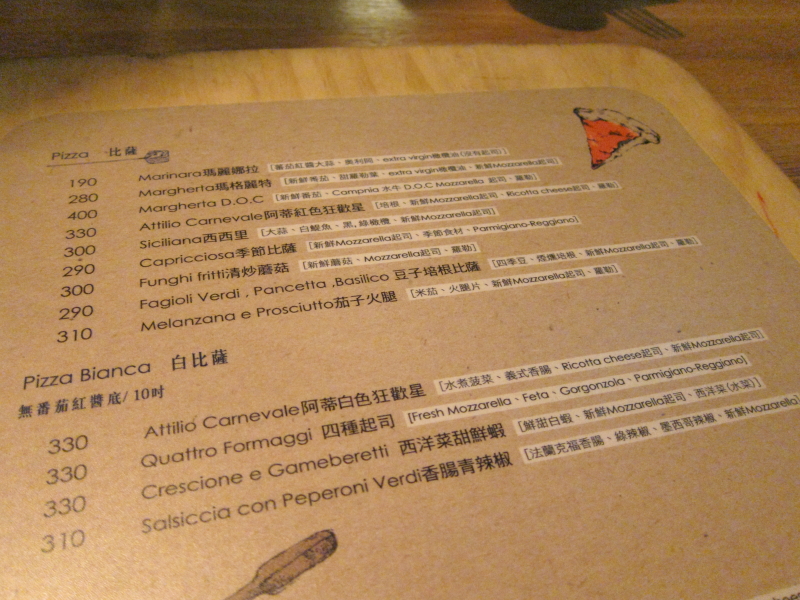 Pizza 比薩
190 Marinara瑪麗娜拉 [蕃茄紅醬大蒜、奧利岡、extra virgin橄欖油(沒有起司)]
280 Margherta瑪格麗特 [新鮮蕃茄、甜羅勒葉、extra virgin橄欖油、新鮮Mozzarella起司]
400 Margherta D.O.C [新鮮蕃茄、Campnia 水牛 D.O.C Mozzarella 起司、羅勒]
330 Attilio Carnevale阿蒂紅色狂歡星 [培根、新鮮Mozzarella起司、Ricotta cheese起司、羅勒]
300 Siciliana西西里 [大蒜、白鯷魚、黑,綠橄欖、新鮮Mozzarella起司]
290 Capricciosa季節比薩 [新鮮Mozzarella起司、季節食材、Parmigiano-Reggiano]
300 Funghi fritti清炒蘑菇 [新鮮蘑菇、Mozzarella起司、羅勒]
290 Fagioli Verdi , Pancetta ,Basilico 豆子培根比薩 [四季豆、煙燻培根、新鮮Mozzarella起司、羅勒]
310 Melanzana e Prosciutto茄子火腿 [米茄、火腿片、新鮮Mozzarella起司、羅勒]
Pizza Bianca 白比薩
無番茄紅醬底/10吋
330 Attilio Carnevale阿蒂白色狂歡星 [水煮菠菜、義式香腸、Ricotta cheese起司、新鮮Mozzarella起司]
330 Quattro Formaggi 四種起司 [Fresh Mozzarella、Feta、Gorgonzola、Parmigiano-Reggiano]
330 Crescione e Gameberetti 西洋菜甜鮮蝦 [鮮甜白蝦、新鮮Mozzarella起司、西洋菜(水菜)]
310 Salsiccia con Peperoni Verdi香腸青辣椒 [法蘭克福香腸、綠辣椒、墨西哥辣椒、新鮮Mozzarella